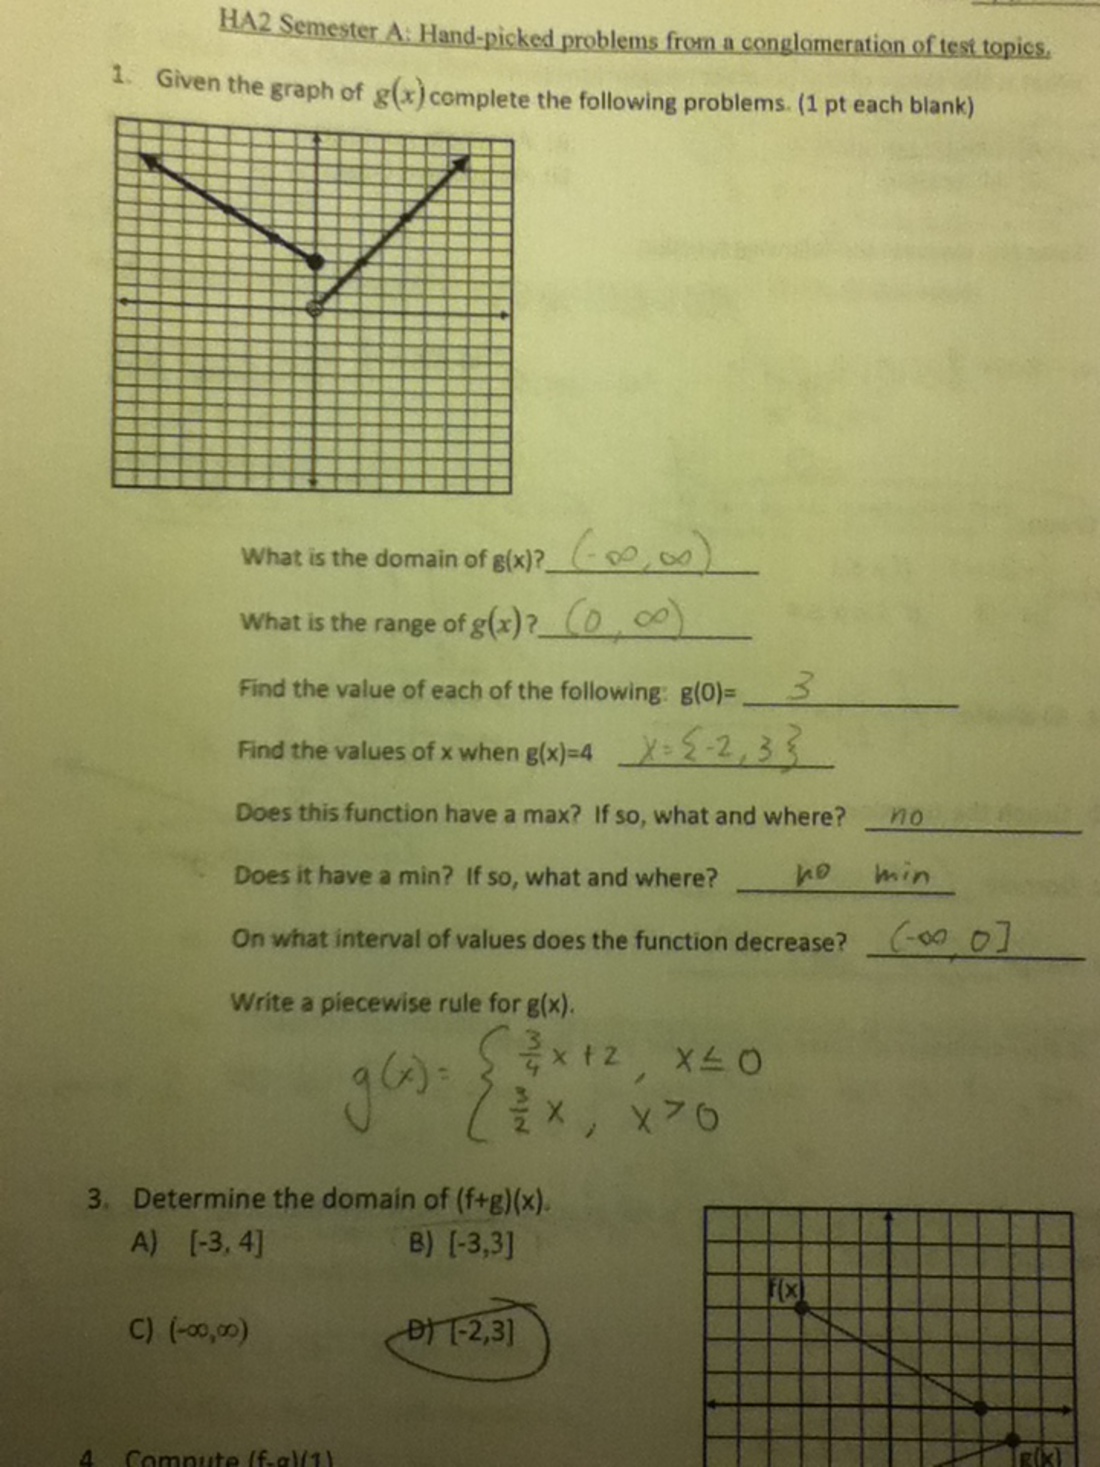 HA2 Semester A: Hand-picked problems from a conglomeration of test topics.
1. Given the graph of g(x) complete the following problems. (1 pt each blank)
What is the domain of g(x)? (-∞,∞)
What is the range of g(x)? (0,∞)
Find the value of each of the following: g(0)= 3
Find the values of x when g(x)=4 x={-2,3}
Does this function have a max? If so, what and where? no
Does it have a min? If so, what and where? no min
On what interval of values does the function decrease? (-∞,0]
Write a piecewise rule for g(x).
g(x)= { 3/4 x+2, x≤0
3/2 x, x>0
3. Determine the domain of (f+g)(x).
A) [-3, 4] B) [-3,3]
C) (-∞,∞) D) [-2,3]
f(x)
g(x)
4. Compute (f-g)(1)